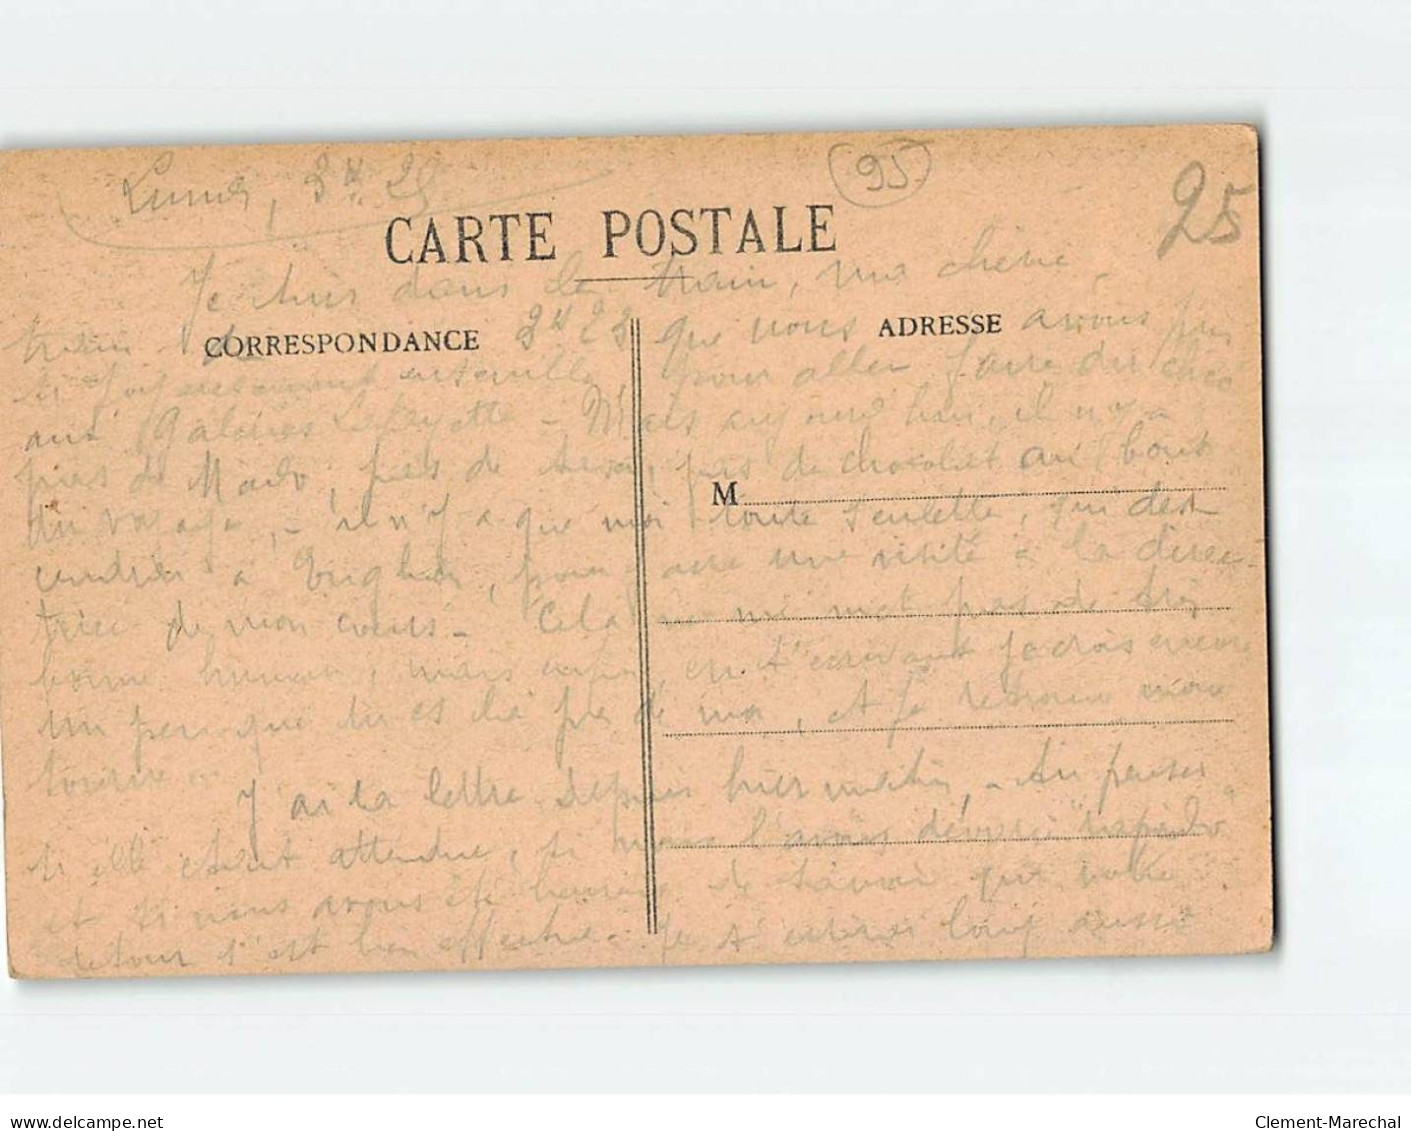 Lundi, 8h 25
95
95
CARTE POSTALE
Je suis dans le train, ma chérie,
train de 8h 28 que nous avons pris
si joyeusement ensemble, pour aller faire du choco
aux Galeries Lafayette - Mais aujourd'hui, il n'y a
CORRESPONDANCE
ADRESSE
pas de Mado, pas de, pas de chocolat au bout
M
du voyage, - il n'y a que moi toute seulette, qui des-
cendrai à Enghien, pour faire une visite à la direc-
trice de mon cours - Cela ne me met pas de très
bonne humeur, mais enfin, en t'écrivant je crois encore
un peu que tu es là près de moi, et je retrouve mon
sourire -
J'ai ta lettre depuis hier matin, - tu penses
si elle était attendue, si nous l'avons dévorée "rapido"
et si nous avons été heureuses de savoir que votre
retour s'est bien effectué. Je t'écrirai long aussi
Clement-Marechal